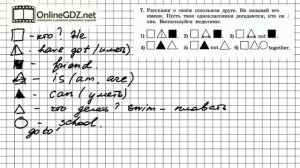 OnlineGDZ.net
7. Расскажи о своём школьном друге. Не называй его
имени. Пусть твои одноклассники догадаются, кто он /
она. Воспользуйся моделями:
1)
2)
3) not
4)
5) not
6) together.
- кто? He
- have got (иметь)
- friend
- is (am, are)
- can (уметь)
- что делать? swim - плавать
- school.
go to